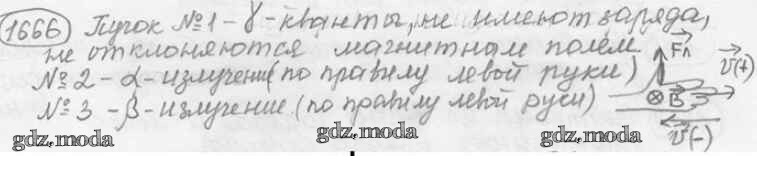 1666 Пучок №1 - γ - кванты, не имеют заряда,
не отклоняются магнитным полем.
№2 - α - излучение (по правилу левой руки)
№3 - β - излучение (по правилу левой руки)
Fл
v(+)
B
v(-)
gdz.moda gdz.moda gdz.moda